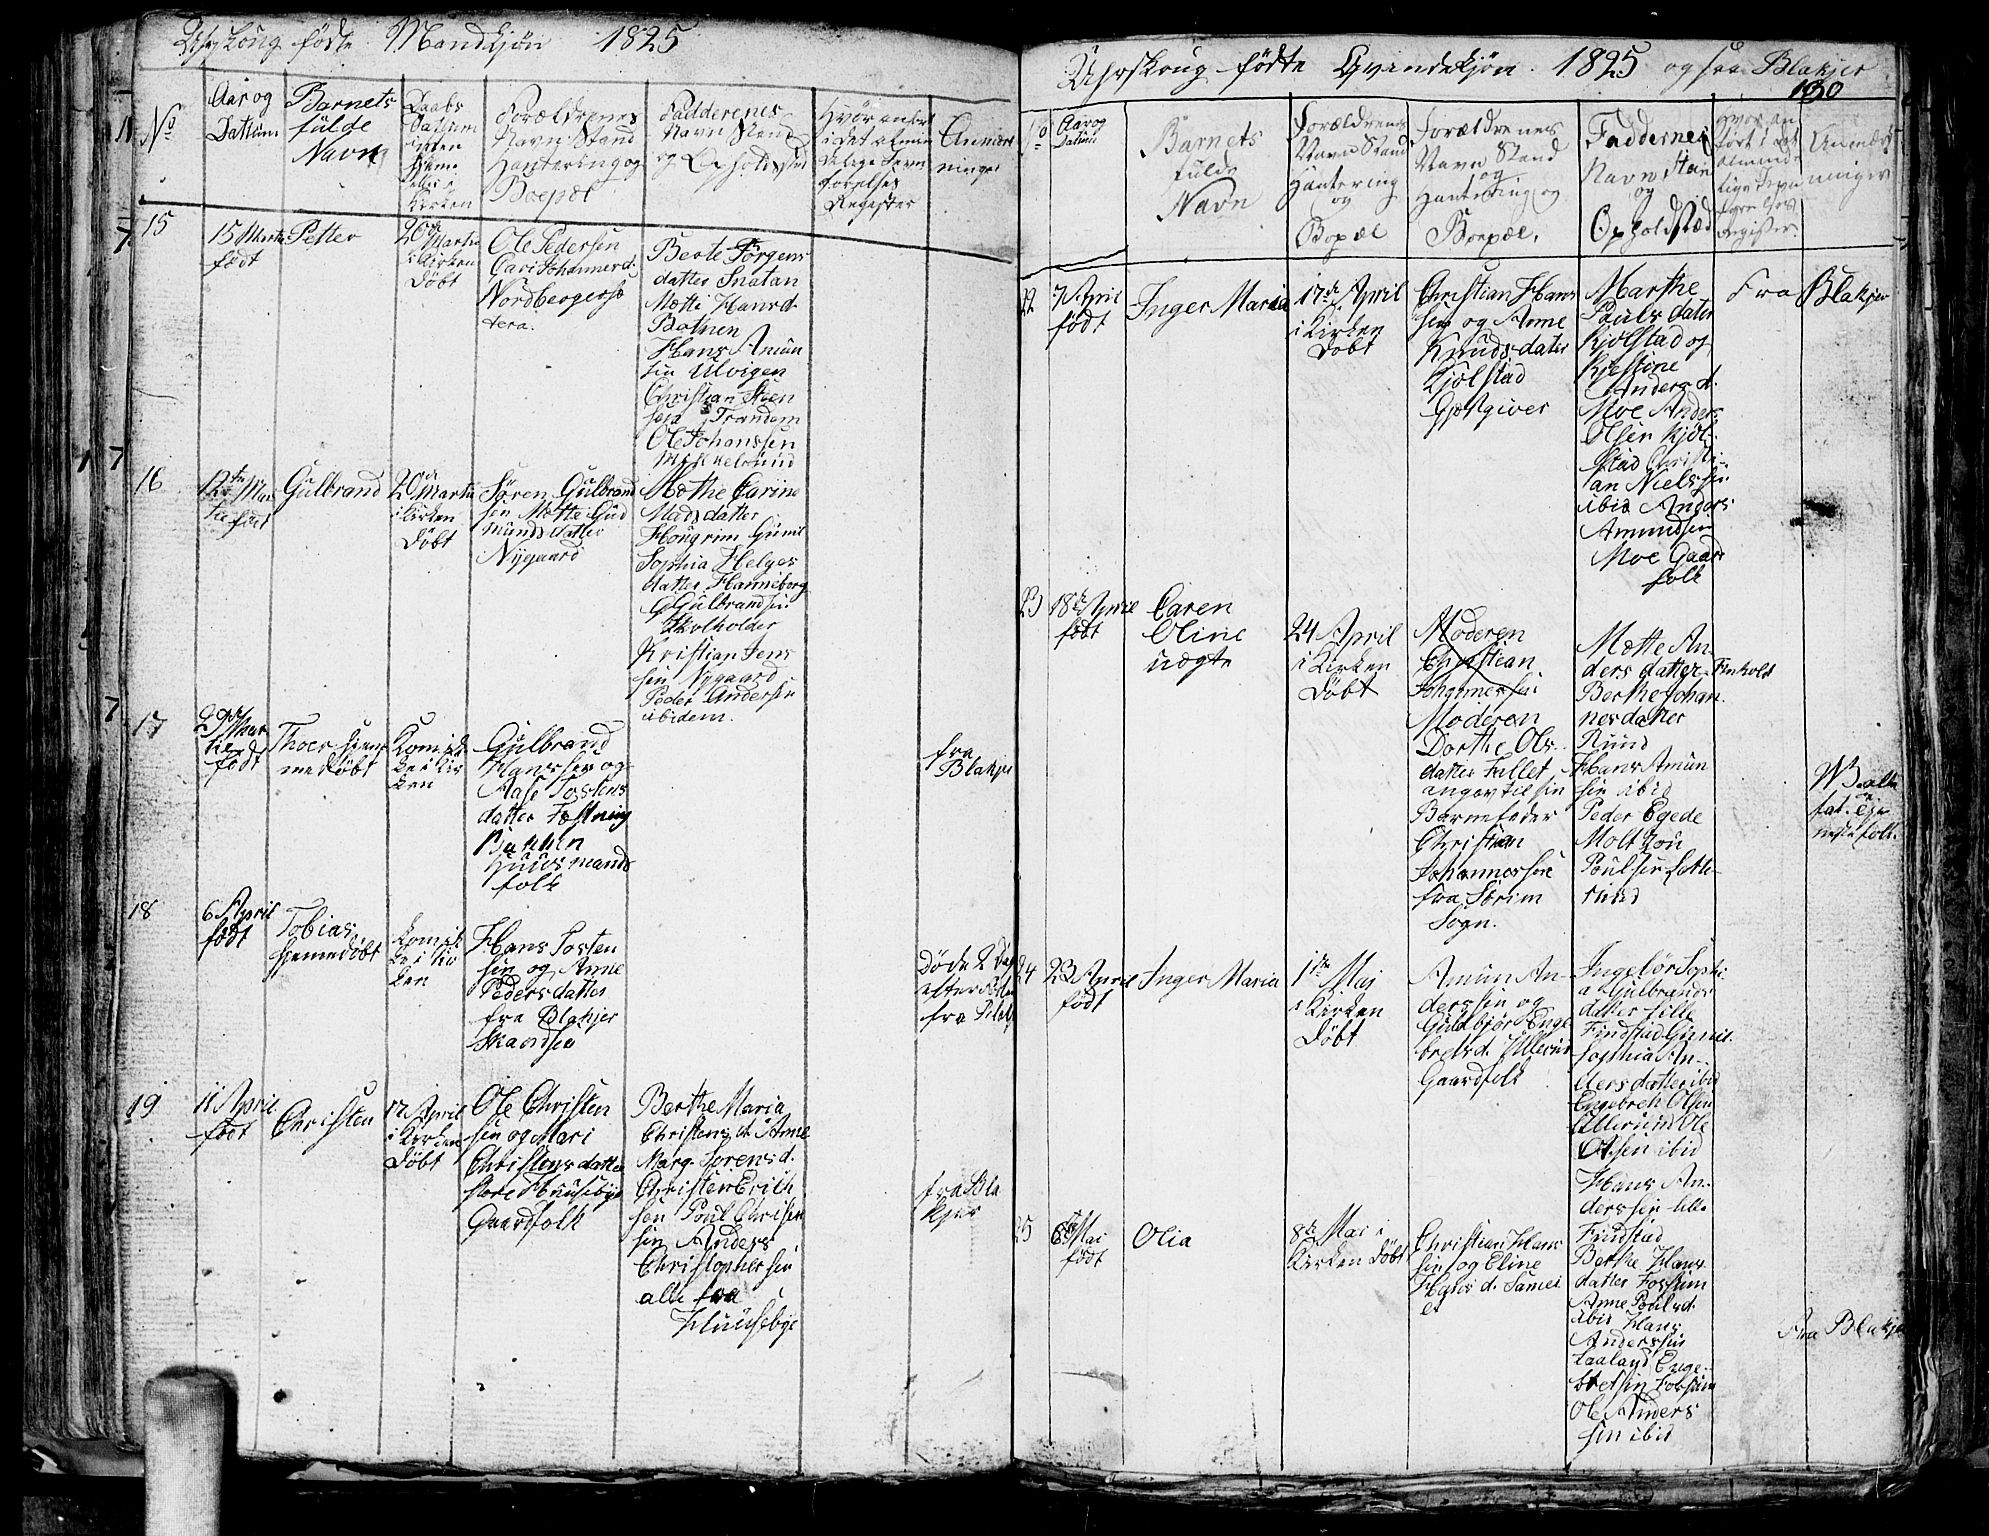 Uhrskoug fødte Mandkjøn 1825
No
Aar og
Dathum
Barnets
fulde
Navn
Daabs
Dathum
Kirken
Forældrenes
Navn Stand
Hantering og
Boepæl
Fadderenes
Navn Stand
og Opholdssted
Hvor anført
i det almin
delige Jevn
førelses
Register
Anmærk
ninger
15
15 Martii
født
Petter
20de Martii
i Kirken
Døbt
Ole Pedersen
Cari Johannesd.
Nordbergersø
tera.
Berte Jørgens
datter Snatan
Mætte Hansd.
Hans Amun
sen Ulvigen
Christian Steen
sen Trandem
Ole Johanssen
Mikkelsrund
16
12te Mar
tii født
Gulbrand
20de Martii
i Kirken
Døbt
Søren Gulbrand
sen Mætte Gud
munds datter
Nygaard
Mæthe Carine
Mads datter
Hougrim
Sophia Helges
datter Hanneborg
G Gulbrandsen
Skolholder
Kristian Jens
sen Nygaard
Peder Andersen
ibidem.
17
29de Mar
tie
født
Thoer hiem
medøbt
Gulbrand
Hanssen og
Aase Tostens
datter Fæstning
Bakken
Huusmands
folk
fra
Blakje
18
6 April
født
Tobias
hjemedøbt
Hans Tosten
sen og Anne
Peders datter
fra Blakjer
Skandsen
Døde 2 Dag
efter
fra
19
11 April
født
Christen
17 April
i Kirken
Døbt
Ole Christen
sen og Mari
Christens datter
store Huusebye
Gaardfolk
Berthe Maria
Christens d. Anne
Marg. Sørens d.
Christen Erich
sen Poul Christen
sen Anders
Christophersen
alle fra
Huusebye
fra Bla
kjer
Uhrskoug fødte Qvindekjøn 1825 og fra Blakjer
130
No
Aar og
Datum
Barnets
fulde
Navn
Forældrenes
Navn Stand
Hantering
og
Bopæl
Forældrenes
Navn Stand
og
Hantering og
Boepæl.
Faddernes
Navn Stan
og
Opholdssted
Hvor an
ført i det
alminde
lige Jevn
førelses
Register.
Anmærk
ninger
22
7 April
født
Inger Maria
17de April
i Kirken
Døbt
Christian Hans
sen og Anne
Knuds datter
Kjølstad
Gjestgiver
Marthe
Pouls datter
Kjølstad og
Kjestine
Anders d.
Moe Anders
Olsen Kjøl
stad Christi
an Nielssen
ibid Anders
Amundsen
Moe Gaard
folk
Fra Blakjer
23
18de April
født
Caren
Oline
uægte
24 April
i Kirken
Døbt
Moderen
Christian
Johannessen
Moderen
Dorthe Ols
datter Fallet
angav til sin
Barnefader
Christian
Johannessen
fra Sørim
Sogn.
Mætte An
ders datter Finholt
Berthe Johan
nes datter
Rund
Hans Amun
sen ibid
Peder Egede
Moltzou
Poul
rund
24
23 April
født
Inger Maria
1ste Mai
i Kirken
Døbt
Amun An
derssen og
Guldbjør Enge
brets d. Ullerud
Gaardfolk
Ingebor Sophi
a Gulbrands
datter lille
Findstad
Sophia An
ders datter ibid
Engebreth Olsen
Ullerund Ole
Olsen ibid
Hans An
derssen lille
Findstad
25
6te Mai
født
Olia
8de Mai i
Kirken Døbt
Christian Hans
sen og Eline
Hans d. Samei
et
Berthe Hans
datter Fossum
Anne Pouls d.
ibid Hans
Anderssen
Enge
bretsen Fossum
Ole Anders
sen ibid
Fra Blakje